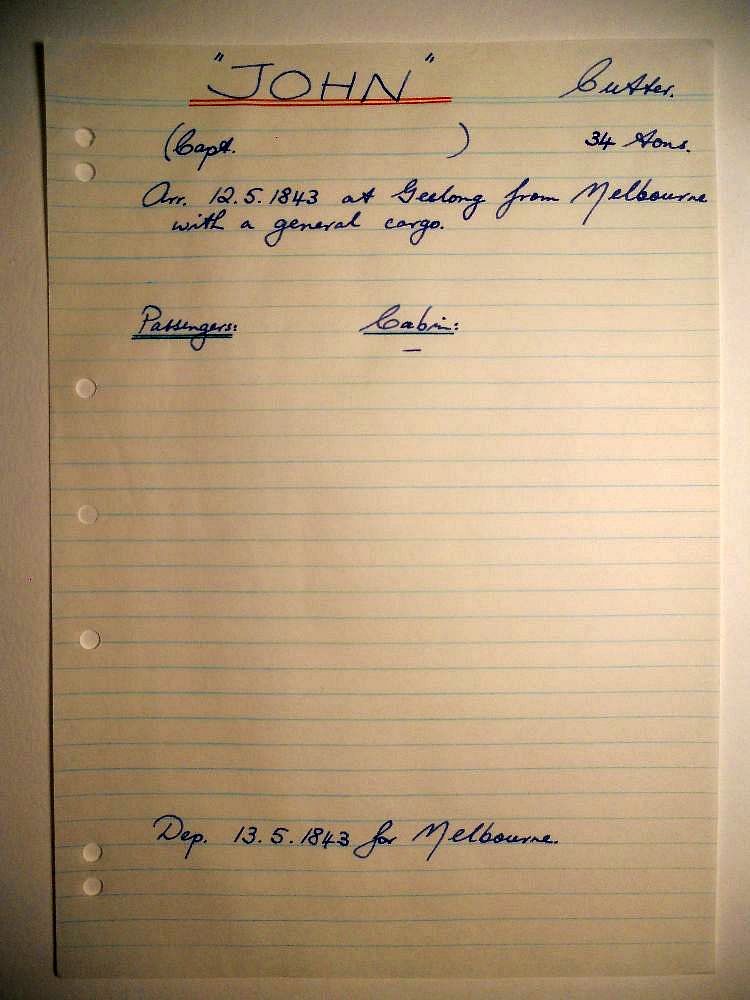 "JOHN" Cutter.
(Capt. ) 34 tons.
Arr. 12.5.1843 at Geelong from Melbourne
with a general cargo.
Passengers: Cabin:
—
Dep. 13.5.1843 for Melbourne.